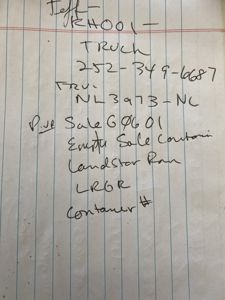 Jeff -
RHOO1 -
TRUCK
252-349-6687
TRL.
NL3973-NC
P.UP Sale GØ601
Empty Sale Contain
LandStar Ran
LRGR
Container #